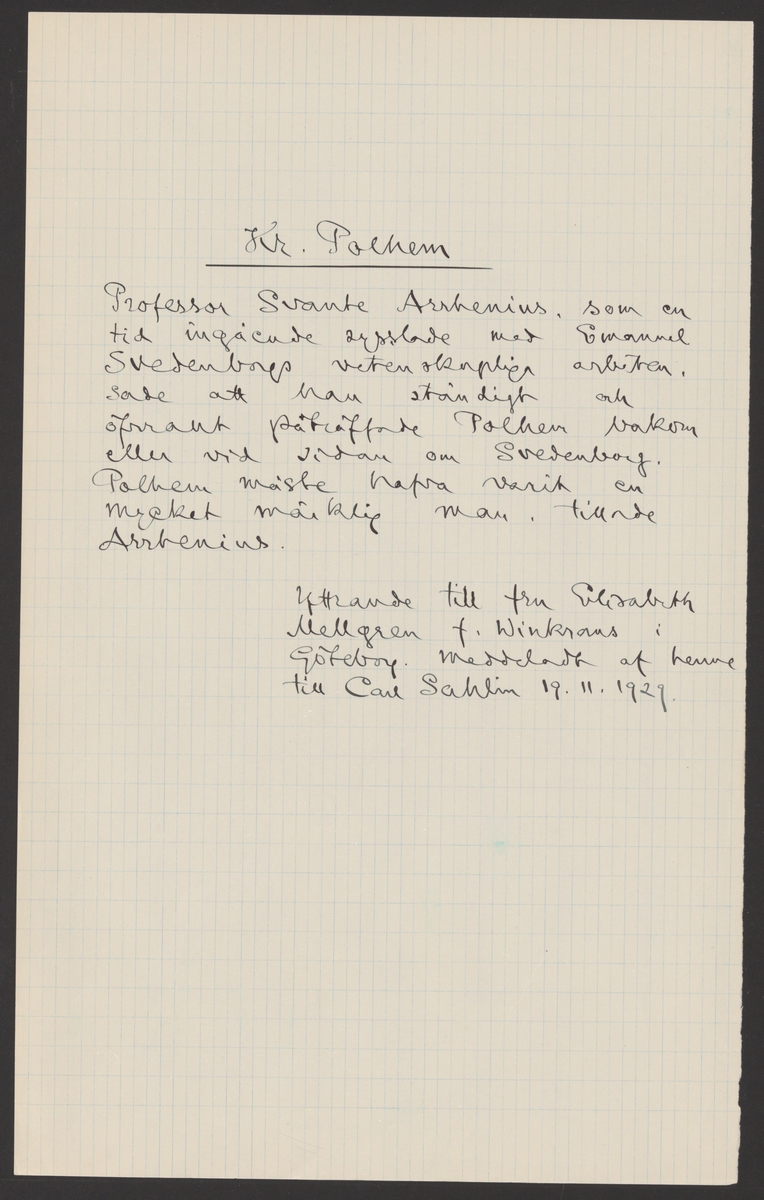 Kr. Polhem
Professor Svante Arrhenius, som en
tid ingående sysslade med Emanuel
Svedenborgs vetenskapliga arbeten,
sade att han ständigt och
öfverallt påträffade Polhem bakom
eller vid sidan om Svedenborg.
Polhem måste hafva varit en
mycket märklig man, tillade
Arrhenius.
Yttrande till fru Elisabeth
Mellgren f. Winkrans i
Göteborg. Meddeladt af henne
till Carl Sahlin 19.11.1929.